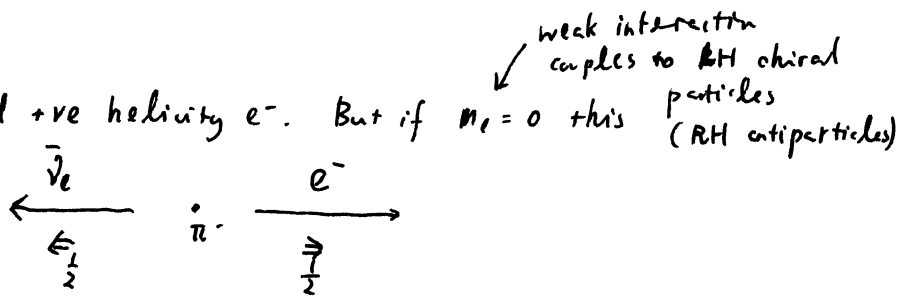 weak interaction
couples to LH chiral
particles
(RH antiparticles)
+ve helicity e⁻. But if mₑ = 0 this
ν̄ₑ e⁻
π⁻
1/2 1/2